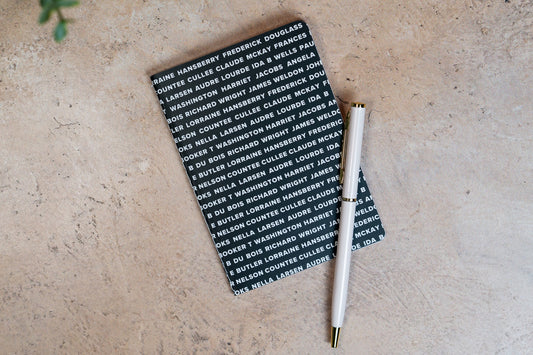 RAINE HANSBERRY FREDERICK DOUGLASS
NTEE CULLEE CLAUDE MCKAY FRANCES
A LARSEN AUDRE LOURDE IDA B WELLS PAU
WASHINGTON HARRIET JACOBS ANGELA
BOIS RICHARD WRIGHT JAMES WELDON JOHN
TLER LORRAINE HANSBERRY FREDERICK DOU
SON COUNTEE CULLEE CLAUDE MCKAY F
S NELLA LARSEN AUDRE LOURDE IDA B
KER T WASHINGTON HARRIET JACOBS AN
DU BOIS RICHARD WRIGHT JAMES WELDON
BUTLER LORRAINE HANSBERRY FREDERIC
NELSON COUNTEE CULLEE CLAUDE MC
KS NELLA LARSEN AUDRE LOURDE IDA
OOKER T WASHINGTON HARRIET JACOB
B DU BOIS RICHARD WRIGHT JAMES
E BUTLER LORRAINE HANSBERRY FRE
R NELSON COUNTEE CULLEE CLAUDE
OKS NELLA LARSEN AUDRE LOURDE
OOKER T WASHINGTON HARRIET JACOBS
B DU BOIS RICHARD WRIGHT JAMES WELDO
E BUTLER LORRAINE HANSBERRY FREDER
NELSON COUNTEE CULLEE CLAUDE MCKAY
OKS NELLA LARSEN AUDRE LOURDE IDA B